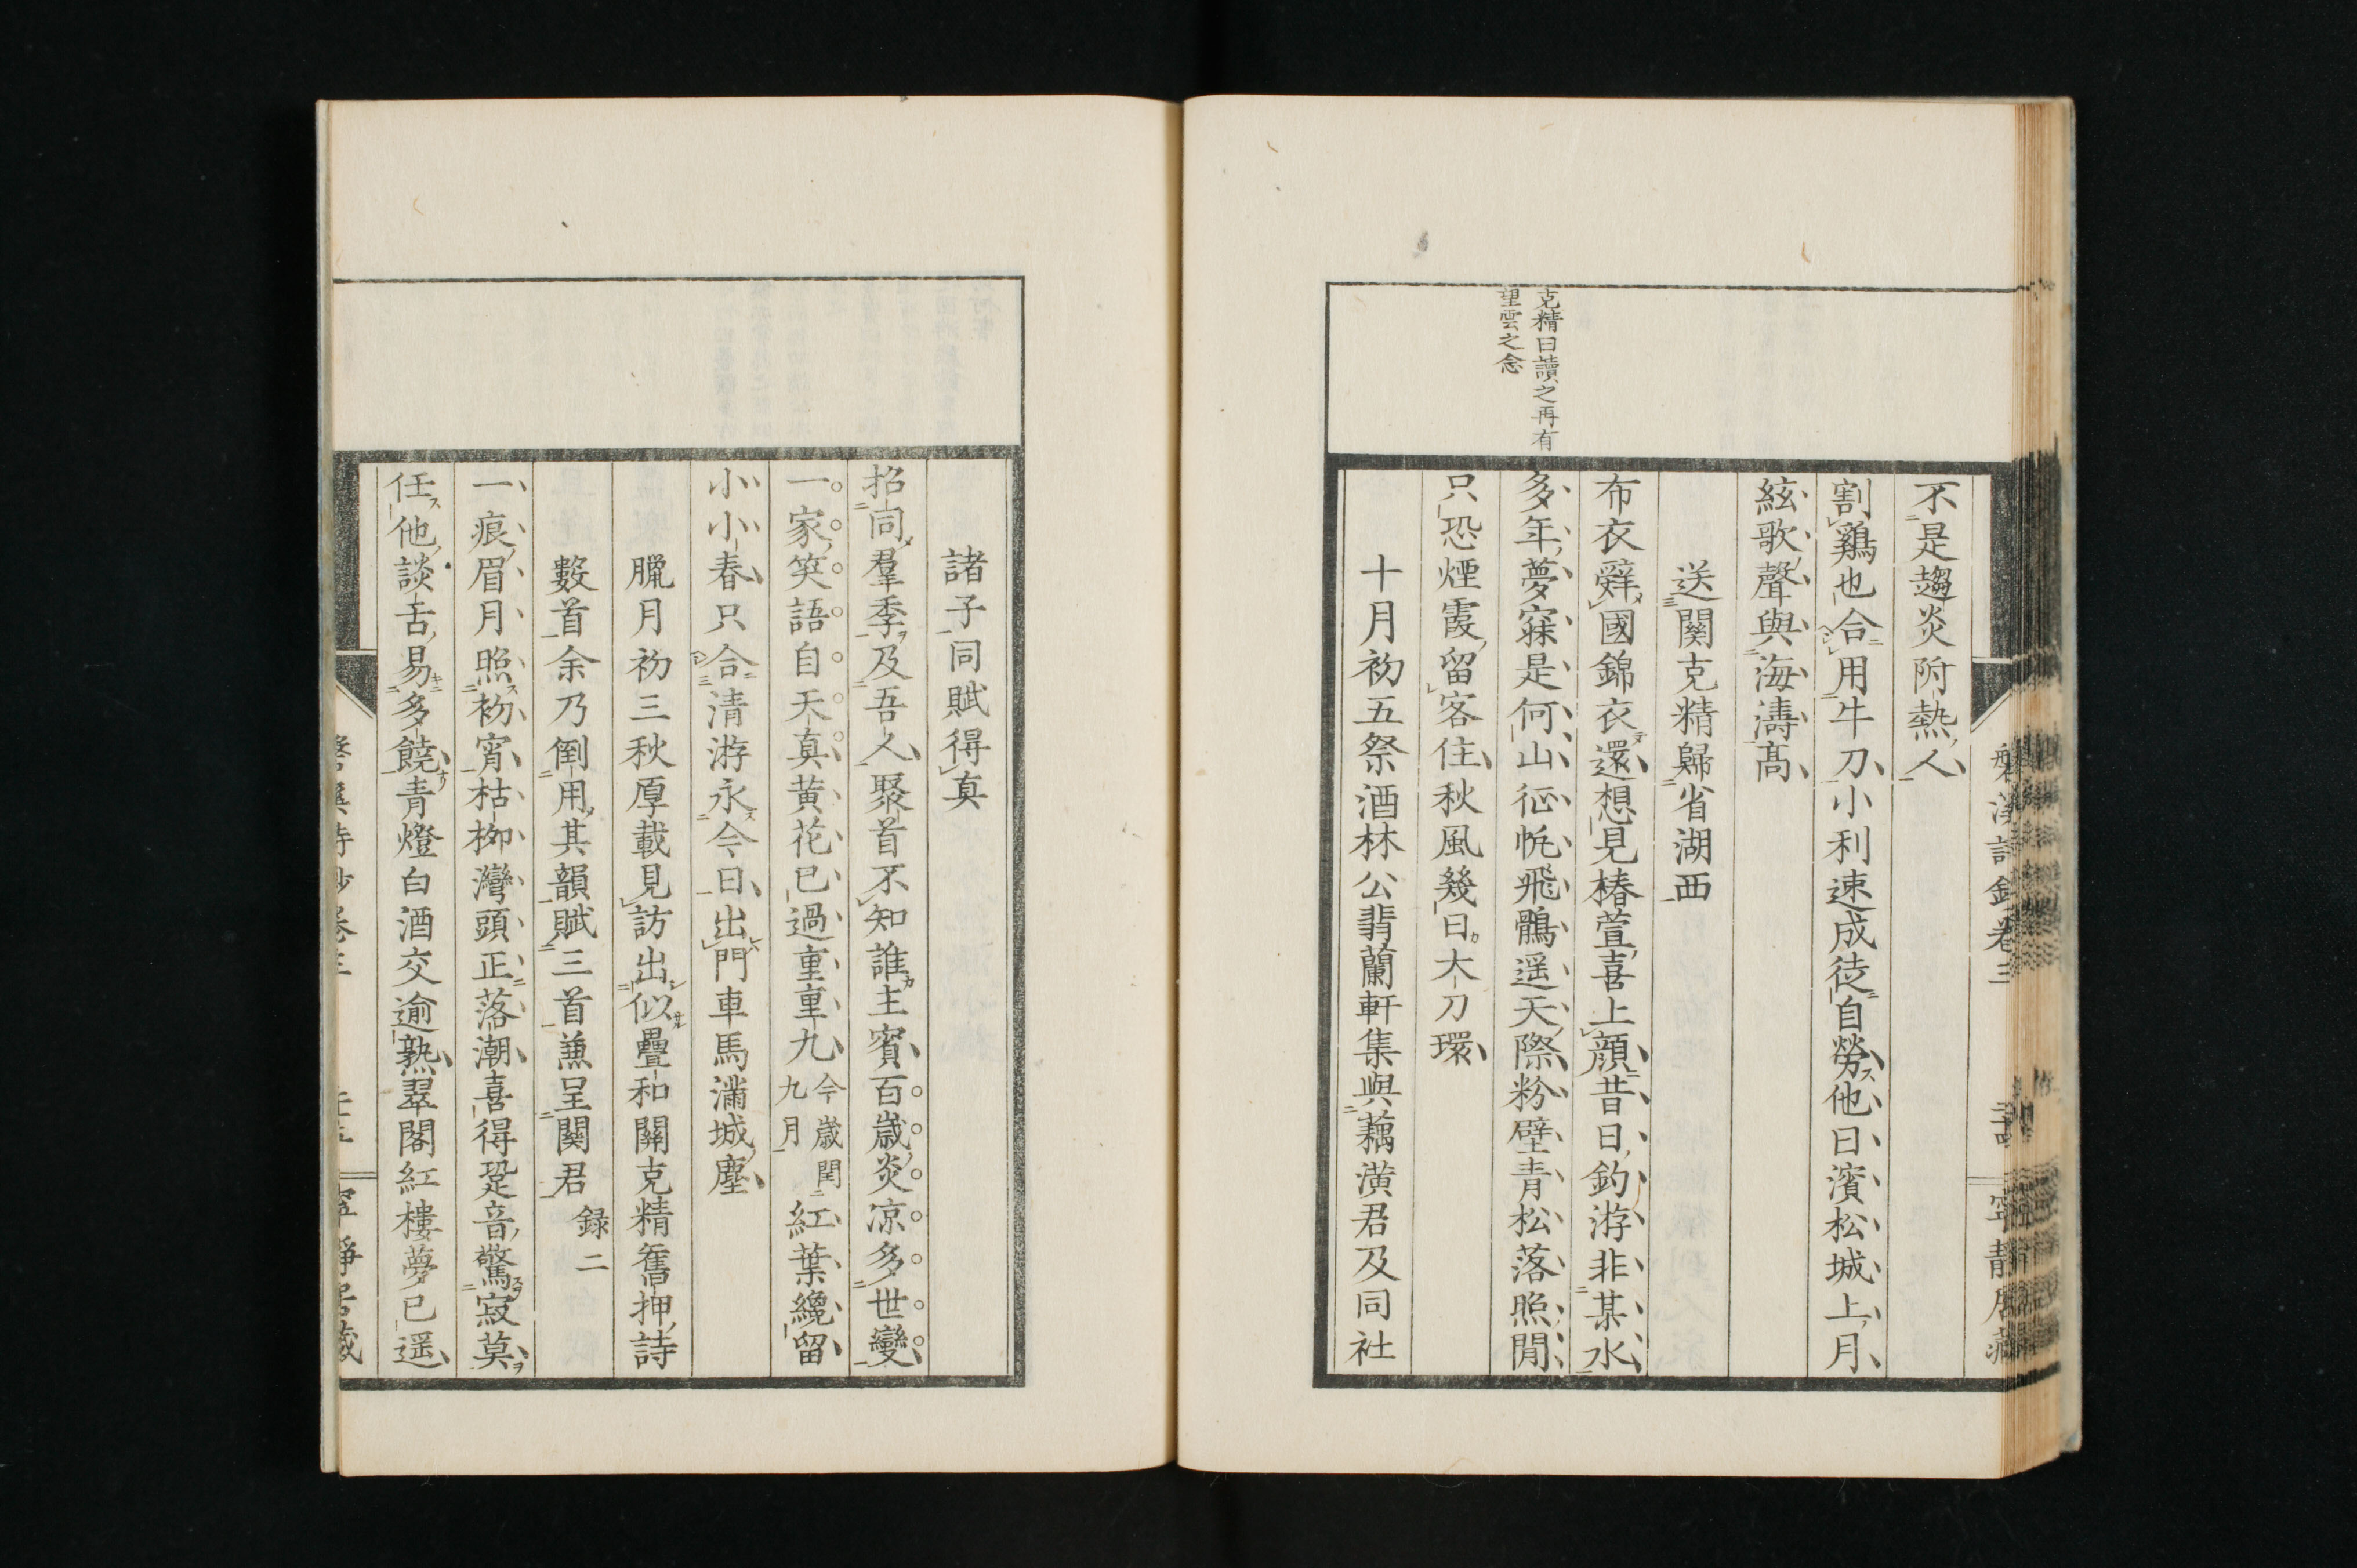 不是趨炎附熱人
割鷄也合用牛刀小利速成徒自勞他日濱松城上月
絃歌聲與海濤髙
送關克精歸省湖西
布衣辭國錦衣還想見椿萱喜上顔昔日釣游非某水
多年夢寐是何山征帆飛鶻遥天際粉壁青松落照閒
克精曰讀之再有
望雲之念
只恐煙霞留客住秋風幾日大刀環
十月初五祭酒林公翡蘭軒集與藕潢君及同社
諸子同賦得真
招同羣季及吾人聚首不知誰主賓百歳炎凉多世變
一家笑語自天真黄花已過重重九今歳閏九月紅葉纔留
小小春只合清游永今日出門車馬滿城塵
臘月初三秋厚載見訪出似疊和關克精舊押詩
數首余乃倒用其韻賦三首兼呈關君 録二
一痕眉月照初宵枯栁灣頭正落潮喜得跫音驚寂莫
任他談舌易多饒青燈白酒交逾熟翠閣紅樓夢已遥